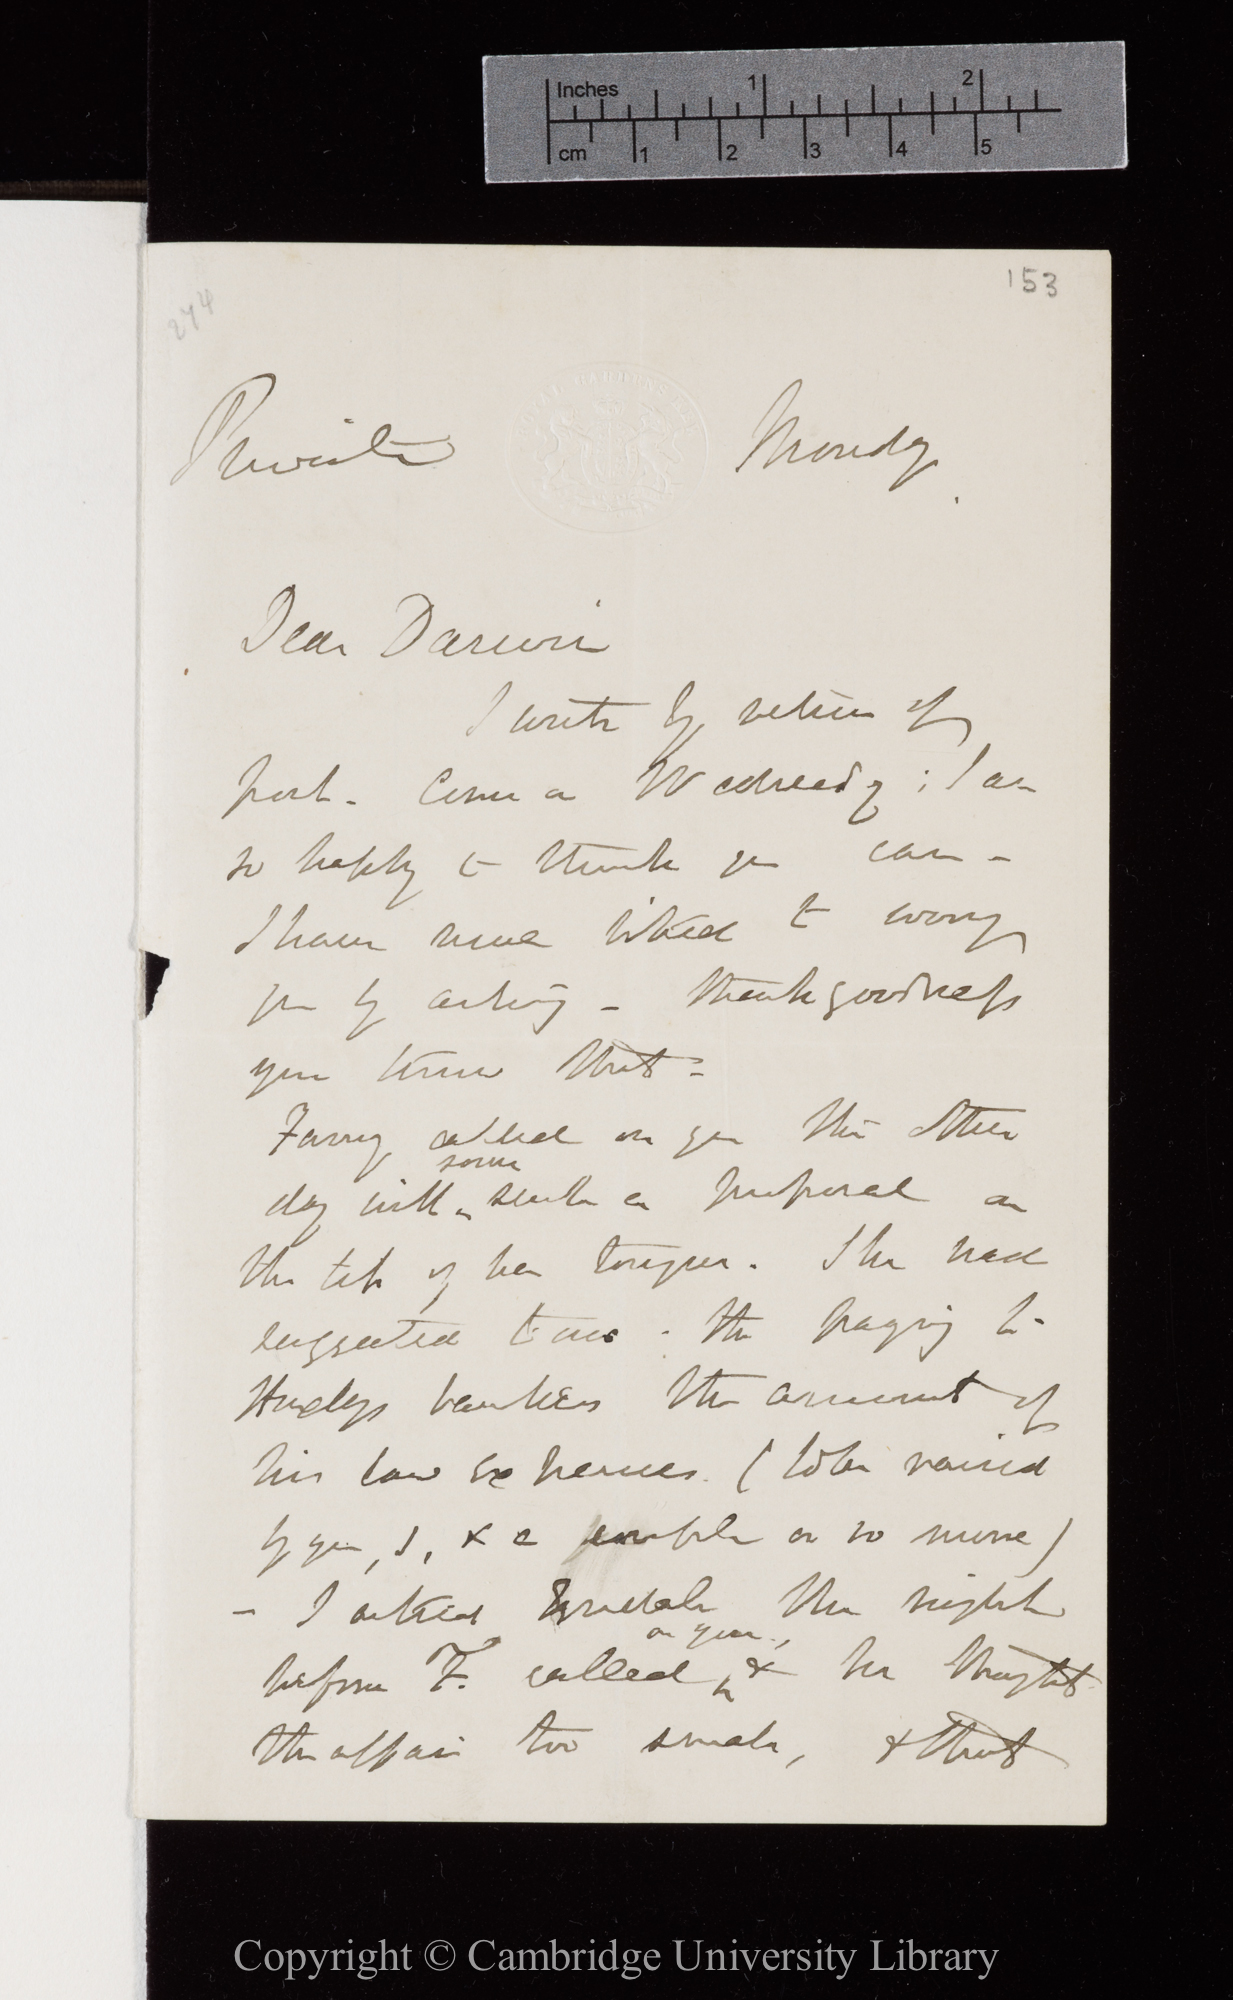 Inches 1 2
cm 1 2 3 4 5
153
274
ROYAL GARDENS KEW
Private Monday.
Dear Darwin
I write by return of
post. Come on Wednesday; I am
so happy to think you can —
I have never liked to worry
you by asking — thank goodness
you know that —
Fanny called on you the other
day with some such a proposal on
the tip of her tongue. She had
suggested to me. the paying to
Huxleys bankers the amount of
his law expenses. (to be raised
by you, I, & a couple or so more)
— I asked Tyndall the night
before F. called on you, & he thought
the affair too small, & that
Copyright © Cambridge University Library